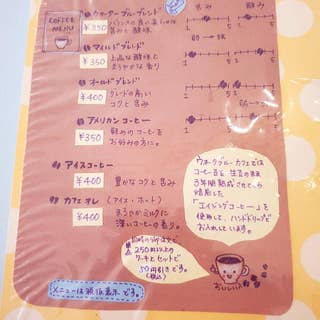 COFFEE
MENU
ウォーターブルーブレンド
¥350
バランスの良い柔らかな
苦みと酸味
苦み
酸み
1 5 1 5
マイルドブレンド
¥350
上品な酸味と
まろやかな香り
1 5 1 5
オールドブレンド
¥400
グレードの高い
コクと苦み
1 5 1 5
アメリカンコーヒー
¥350
軽めのコーヒーを
お好みの方に。
1 5 1 5
アイスコーヒー
¥400
豊かなコクと苦み
カフェオレ (アイス・ホット)
¥400
まろやかミルクに
深いコーヒーの香り。
ウォーターブルーカフェでは
コーヒー豆を生豆のまま
3年間熟成させてから
焙煎した
「エイジングコーヒー」を
使用して、ハンドドリップで
お入れしています。
250円以上の
ケーキとセットで
50円引きです。
(税込)
おいしいよ
メニューは税抜表示です。